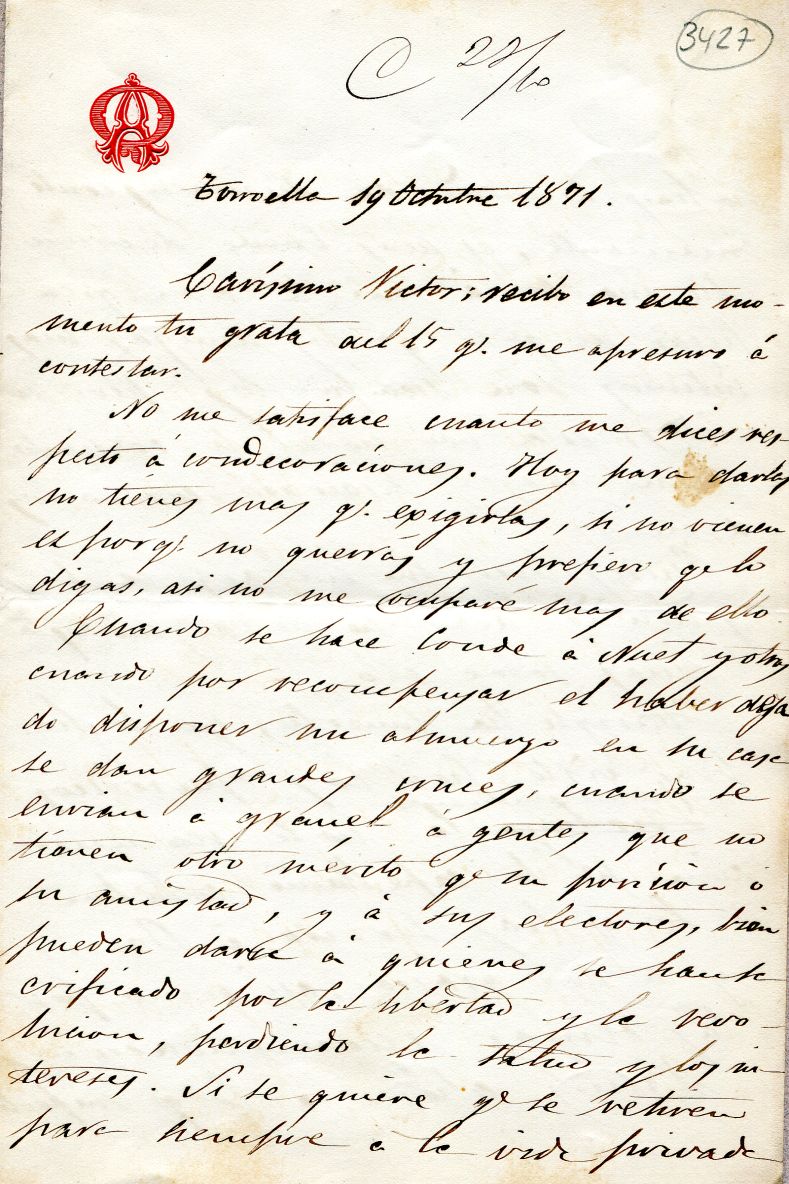 3427
C 22/10
Torroella 19 Octubre 1871.
Caríssimo Victor; recibo en este mo-
mento tu grata del 15 q. me apresuro á
contestar.
No me satisface cuanto me dices res-
pecto á condecoraciones. Hoy para darlas
no tienes mas q. exigirlas, si no vienen
es porq. no querrás y prefiero qe lo
digas, asi no me ocuparé mas de ello.
Cuando se hace Conde á Nuet y otros
cuando por recompensar el haber deja
do disponer un almuerzo en su casa
se dan grandes cruces, cuando se
envian á granel á gentes que no
tienen otro mérito qe su posision ó
su amistad, y á sus electores, bien
pueden darse á quienes se han sa
crificado por la libertad y la revo-
lucion, perdiendo la salud y los in-
tereses. Si se quiere qe se retiren
para siempre á la vida privada